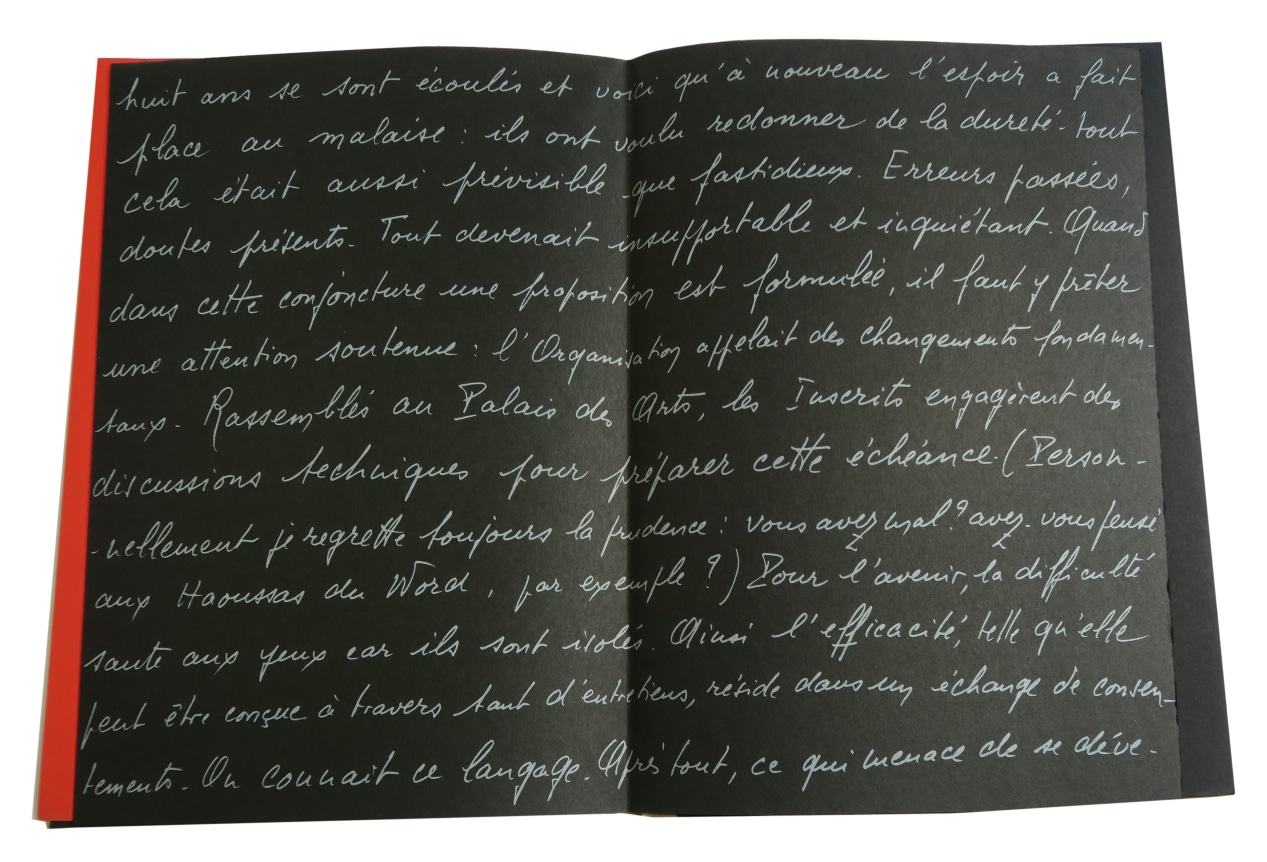 huit ans se sont écoulés et voici qu'à nouveau l'espoir a fait
place au malaise : ils ont voulu redonner de la dureté. tout
cela était aussi prévisible que fastidieux. Erreurs passées,
doutes présents. Tout devenait insupportable et inquiétant. Quand
dans cette conjoncture une proposition est formulée, il faut y prêter
une attention soutenue : l'Organisation appelait des changements fondamen-
taux. Rassemblés au Palais des Arts, les Inscrits engagèrent des
discussions techniques pour préparer cette échéance. (Person-
-nellement je regrette toujours la prudence : vous avez mal ? avez-vous pensé
aux Haoussas du Word, par exemple ?) Pour l'avenir, la difficulté
saute aux yeux car ils sont isolés. Ainsi l'efficacité, telle qu'elle
peut être conçue à travers tant d'entretiens, réside dans un échange de consen-
tements. On connait ce langage. Après tout, ce qui menace de se déve-